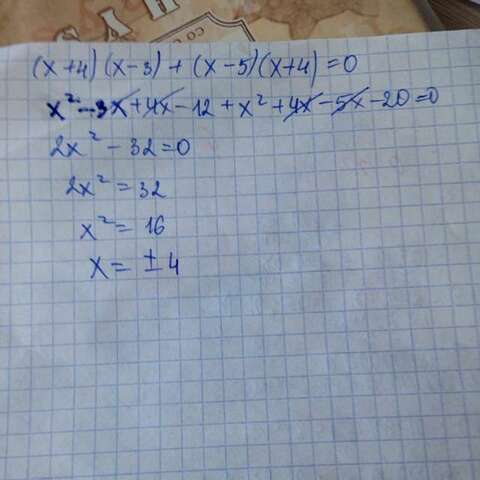 (x+4)(x-3)+(x-5)(x+4)=0
x²-3x+4x-12+x²+4x-5x-20=0
2x²-32=0
2x²=32
x²=16
x=±4